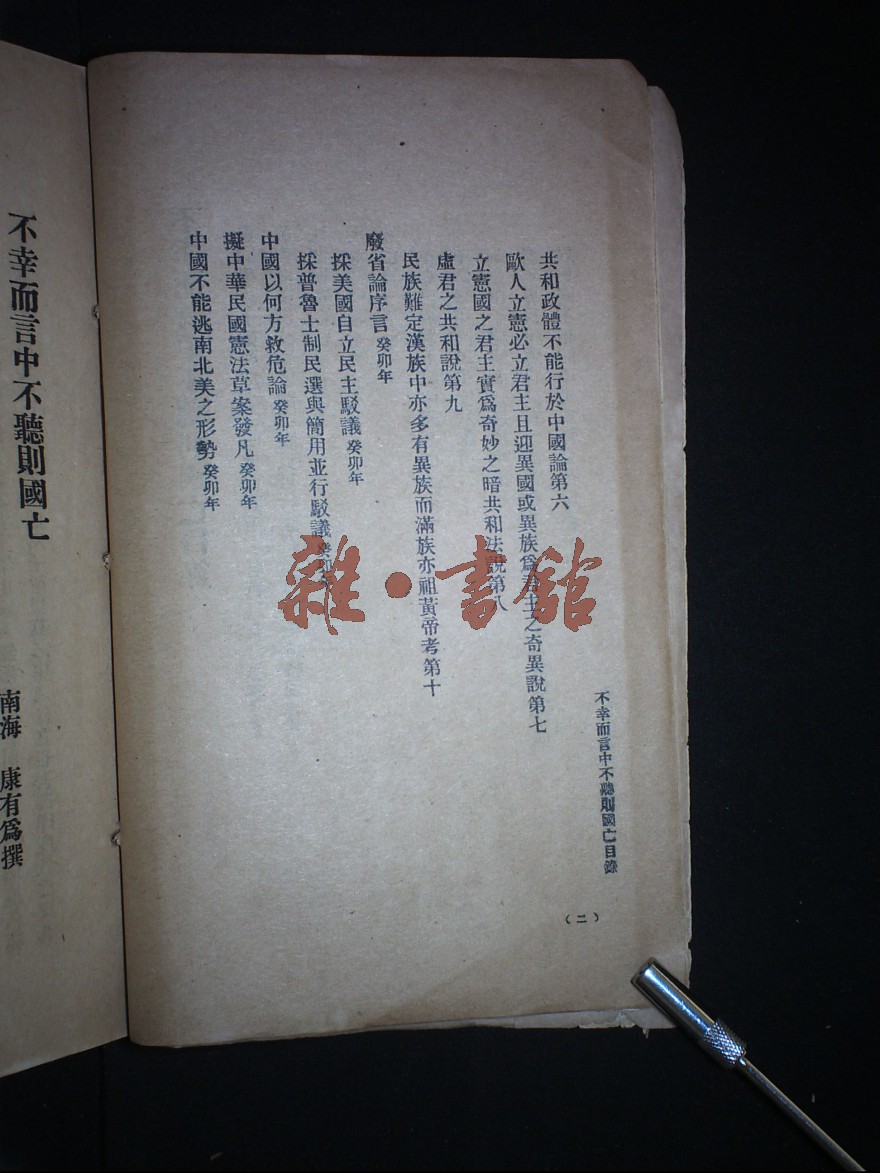 不幸而言中不聽則國亡目錄
(二)
共和政體不能行於中國論第六
歐人立憲必立君主且迎異國或異族爲君主之奇異說第七
立憲國之君主實爲奇妙之暗共和法說第八
虛君之共和說第九
民族難定漢族中亦多有異族而滿族亦祖黃帝考第十
廢省論序言 癸卯年
採美國自立民主駁議 癸卯年
採普魯士制民選與簡用並行駁議 癸卯年
中國以何方救危論 癸卯年
擬中華民國憲法草案發凡 癸卯年
中國不能逃南北美之形勢 癸卯年
不幸而言中不聽則國亡
南海 康有爲撰
雜·書館